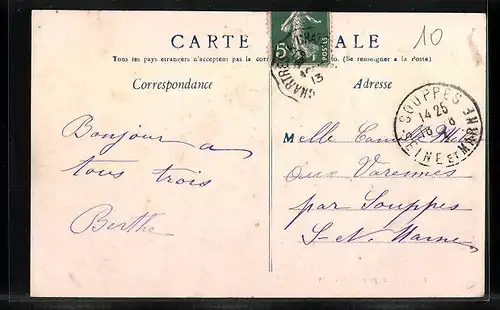 10
CARTE ALE
Tous les pays étrangers n'acceptent pas la cor (Se renseigner à la Poste)
Correspondance
Adresse
5c
POSTES
13
SOUPPES
14 25
SEINE ET MARNE
Bonjour a
tous trois
Berthe
Melle Camille
aux Varennes
par Souppes
S-et-Marne